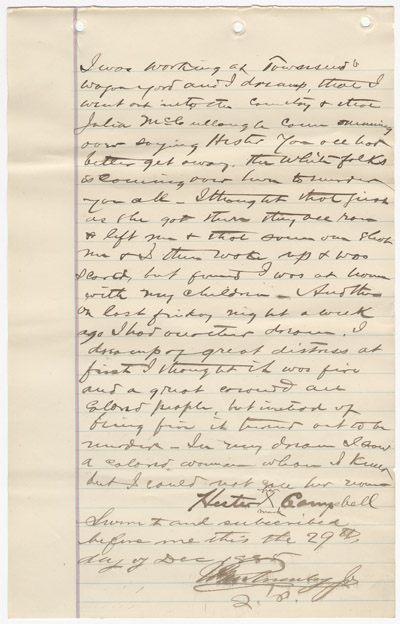 I was working at Townsend's
wagon yard and I dreamp, that I
went out into the country & that
Julia McCullough come running
over saying Hester You all had
better get away. the white folks
is coming over here to murder
you all – I thought that just
as she got there they all ran
& left me & that some one shot
me & I then woke up & was
scared, but found I was at home
with my children – Another
on last friday night a week
ago I had another dream. I
dreamp of great distress at
first I thought it was fire
and a great crowd all
colored people, but instead of
being fire it turned out to be
murder – In my dream I saw
a colored woman whom I knew
but I could not see her
Hester X Campbell
mark
Sworn to and subscribed
before me this the 29th
day of Dec 1885
Jr